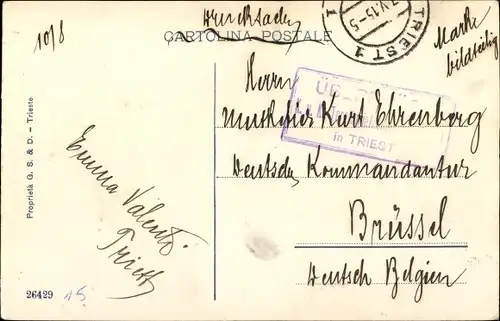 10/8
Drucksache
CARTOLINA POSTALE
TRIEST 1
V.15-5
1
Marke
bildseitig
Herrn
ÜB
in TRIEST
Musketier Kurt Ehrenberg
Deutsche Kommandantur
Brüssel
Deutsch Belgien
Emma Valenti
Triest
Proprietà G. S. & D. – Trieste
26429
15